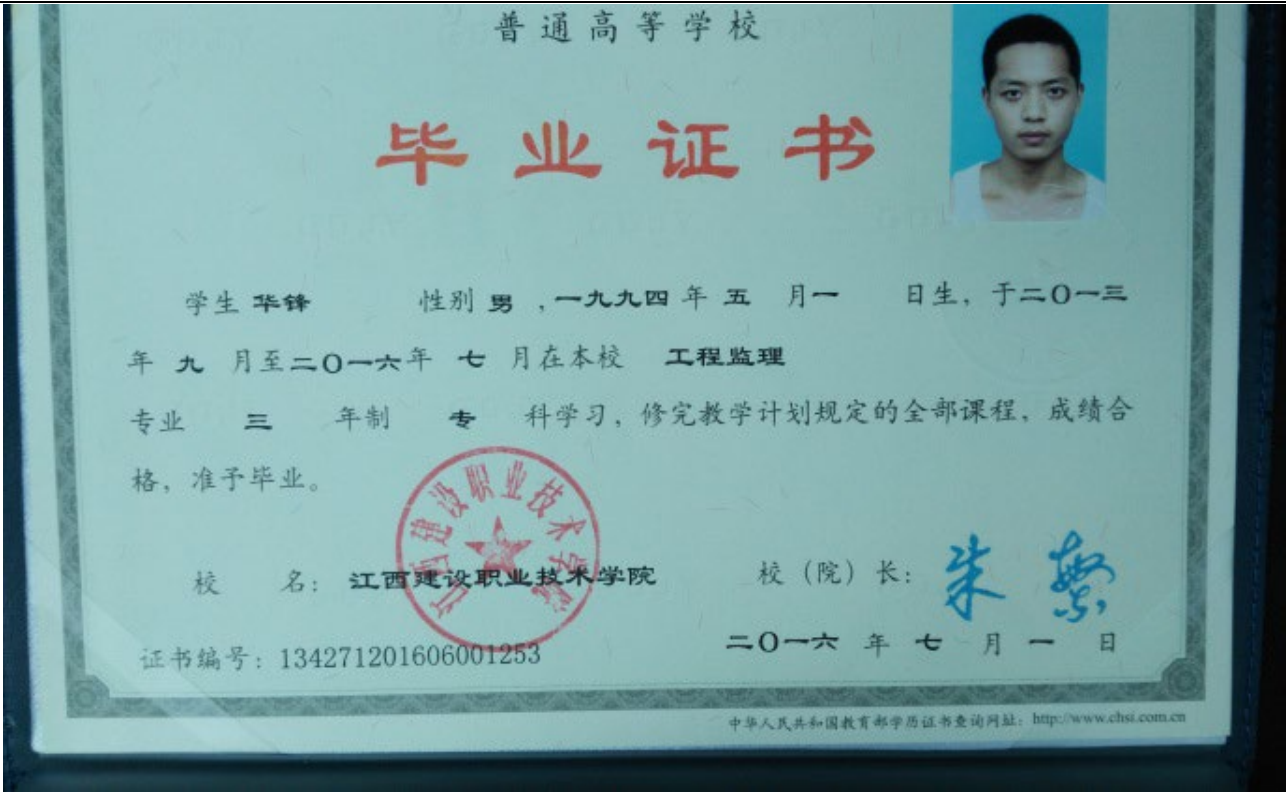 普通高等学校
毕业证书
学生 华锋 性别 男 ,一九九四 年 五 月一 日生，于二O一三
年 九 月至二O一六年 七 月在本校 工程监理
专业 三 年制 专 科学习，修完教学计划规定的全部课程，成绩合
格，准予毕业。
江西建设职业技术学院
校 名： 江西建设职业技术学院 校（院）长： 朱
二O一六 年 七 月 一 日
证书编号：134271201606001253
中华人民共和国教育部学历证书查询网址：http://www.chsi.com.cn